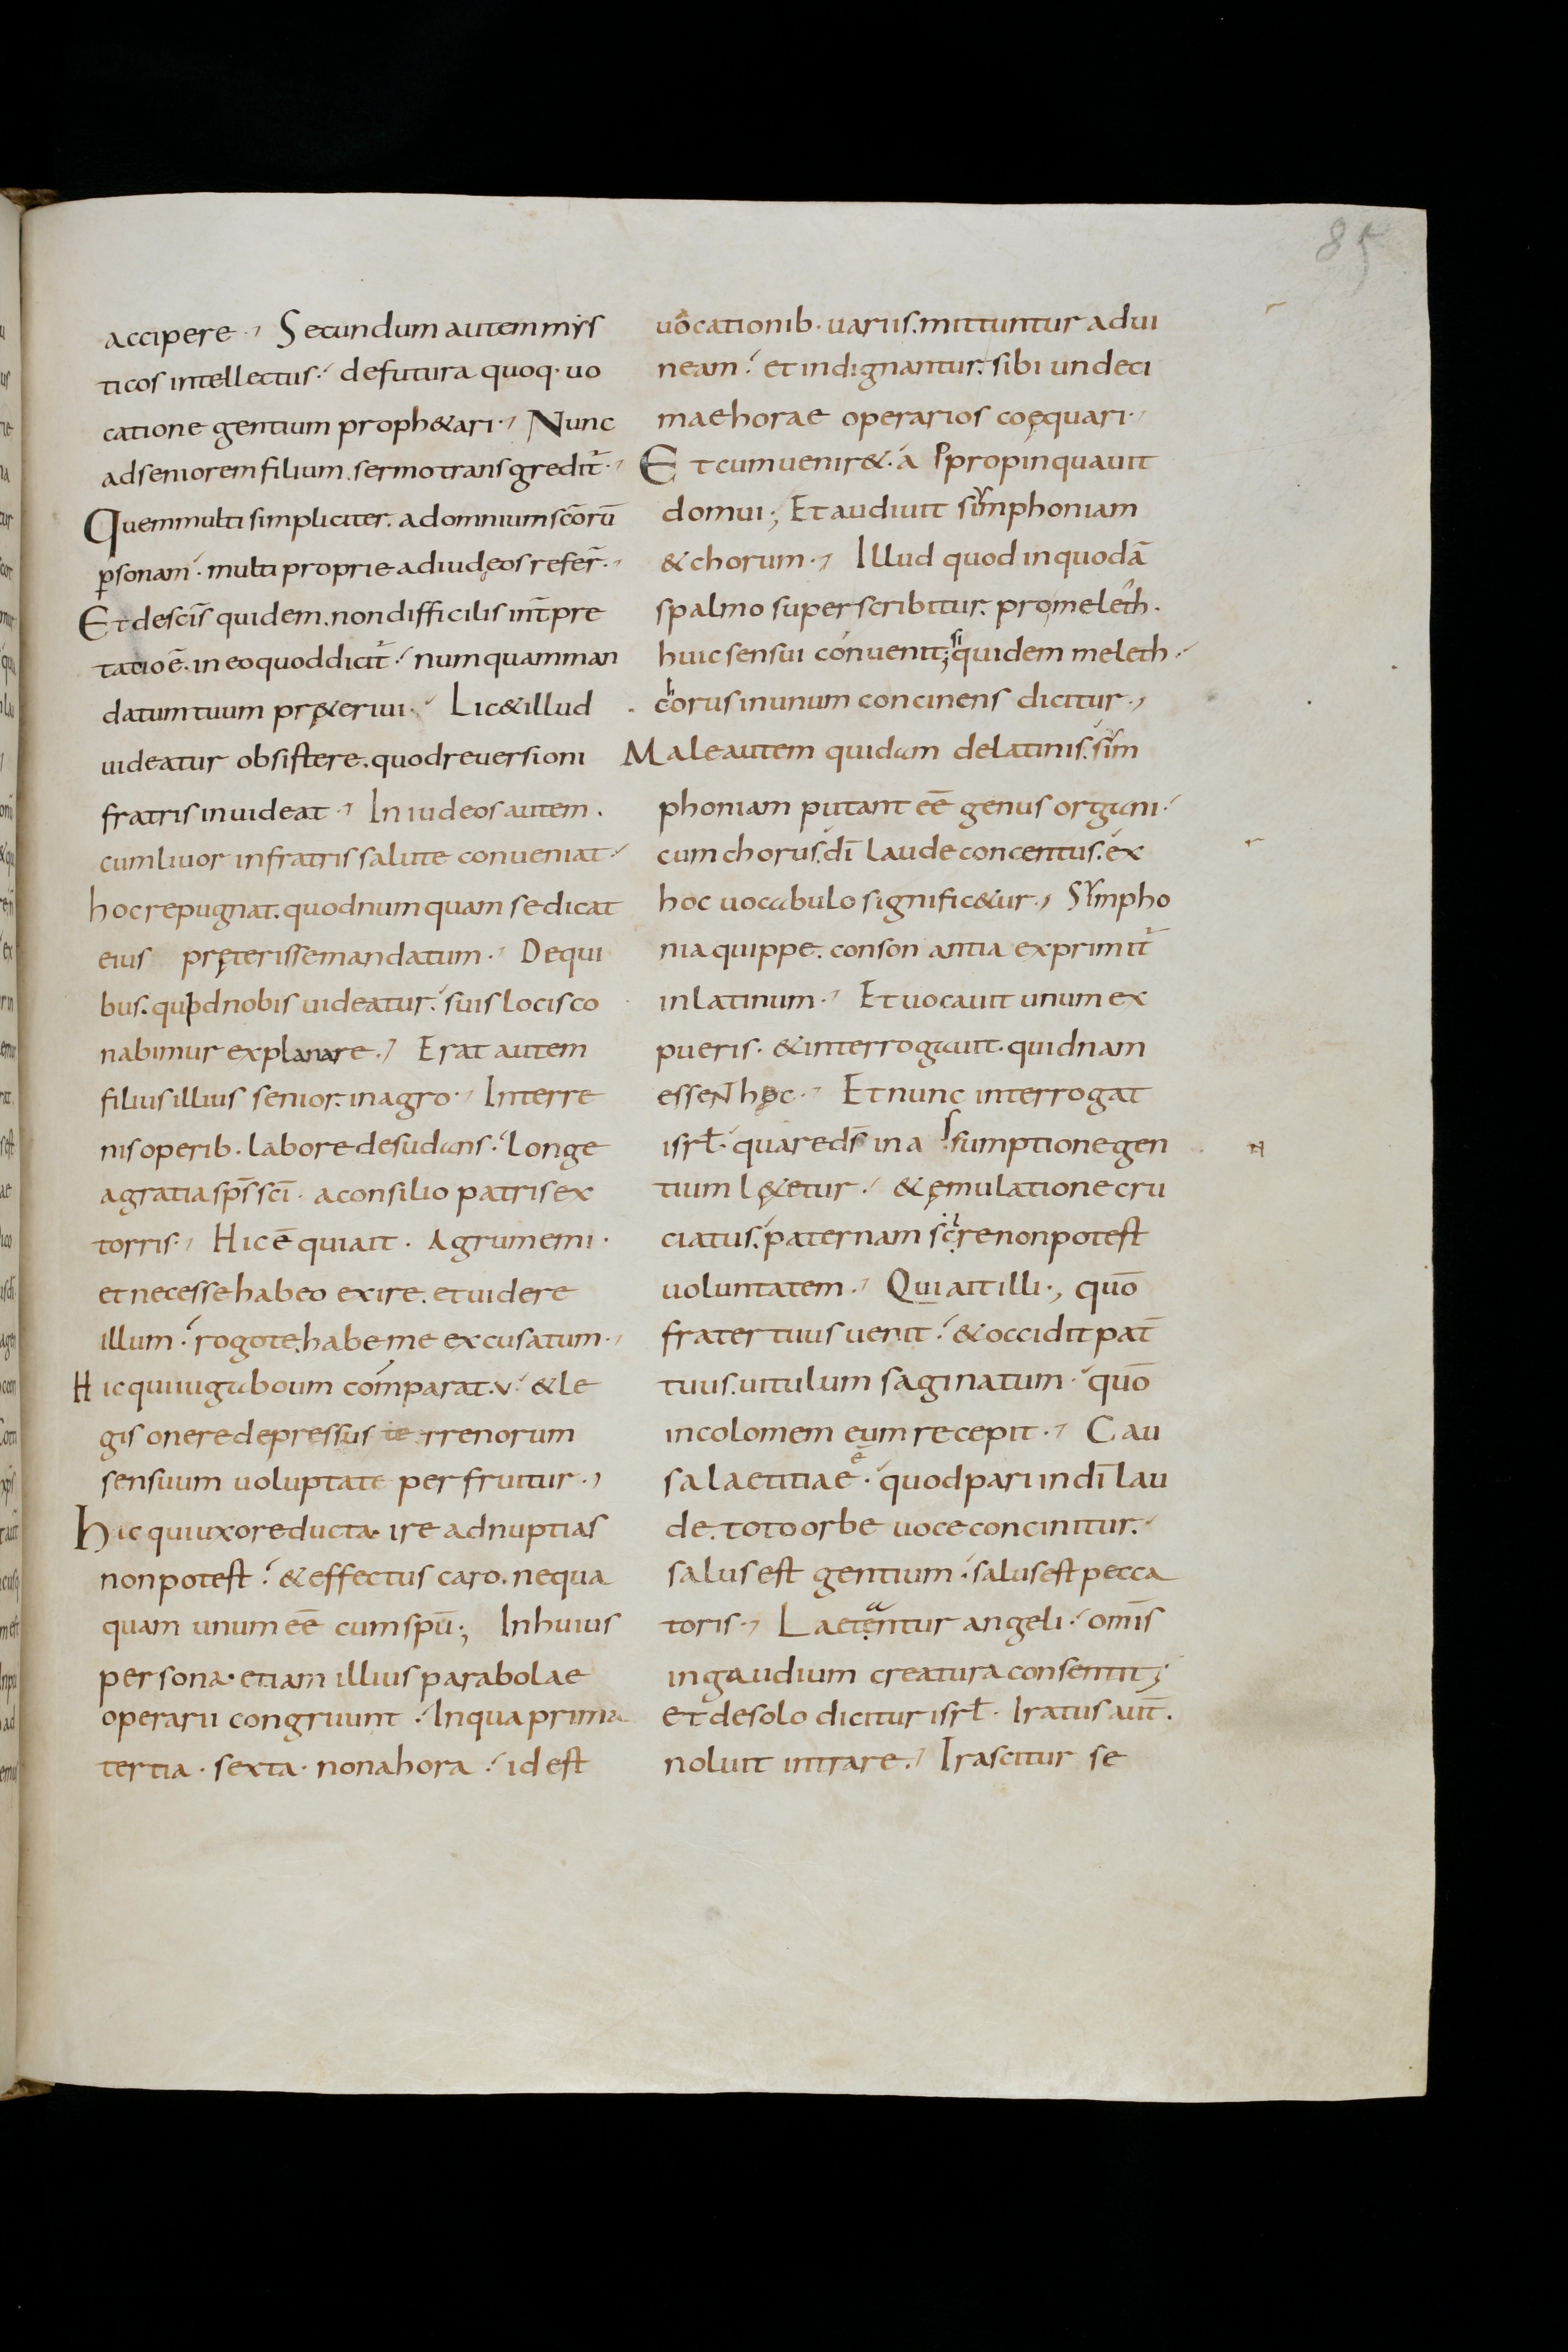 85
accipere · Secundum autem mys
ticos intellectus · de futura quoq· uo
catione gentium proph&ari · Nunc
ad seniorem filium. sermo transgredit̄ ·
Quem multi simpliciter. ad omnium sc̄orū
ꝑsonam · multi proprie ad iudęos refer̄ ·
Et de scīs quidem. non difficilis int̄pre
tatio ē. in eo quod dicit̄ · numquam man
datum tuum pręt&eriui · Lic& illud
uideatur obsistere. quod reuersioni
fratris inuideat · In iudeos autem.
cum liuor in fratris salute conueniat ·
hoc repugnat. quod numquam se dicat
eius pręterisse mandatum · De qui
bus. quid nobis uideatur. suis locis co
nabimur explanare · Erat autem
filius illius senior. in agro · In terre
nis operib· labore desudans · Longe
a gratia sp̄s sc̄i · a consilio patris ex
torris · Hic ē qui ait · Agrum emi ·
et necesse habeo exire. et uidere
illum · rogo te. habe me excusatum ·
Hic qui iuga boum comparat · v · & le
gis onere depressus terrenorum
sensuum uoluptate perfruitur ·
hic qui uxore ducta · ire ad nuptias
non potest · & effectus caro. nequa
quam unum eē cum spū ; In huius
persona · etiam illius parabolae
operarii congruunt · In qua prima
tertia · sexta · nona hora · id est
uocationib· uariis. mittuntur ad ui
neam · et indignantur. sibi undeci
mae horae operarios coęquari ·
Et cum uenir& · a Ppropinquauit
domui ; Et audiuit symphoniam
& chorum · Illud quod in quodā
spalmo superscribitur. pro meleth ·
huic sensui conuenit; siquidem meleth ·
chorus in unum concinens dicitur ·
Male autem quidam de latinis. sym
phoniam putant eē genus organi ·
cum chorus. dī laude concentus. ex
hoc uocabulo signific&ur · Sympho
nia quippe. consonantia exprimit̄
in latinum · Et uocauit unum ex
pueris · & interrogauit · quid nam
essent hęc · Et nunc interrogat
isrł · quare ds̄ in assumptione gen
tium lę&etur · & ęmulatione cru
ciatus. paternam scire non potest
uoluntatem · Qui ait illi ·, quō
frater tuus uenit · & occidit pat̄
tuus. uitulum saginatum · quō
incolomem eum recepit · Cau
sa laetitiae ē · quod pari in dī lau
de. toto orbe uoce concinitur.
salus est gentium · salus est pecca
toris · Laetantur angeli · omīs
in gaudium creatura consentit;
et de solo dicitur isrł · Iratus aut̄ .
noluit intrare · Irascitur se